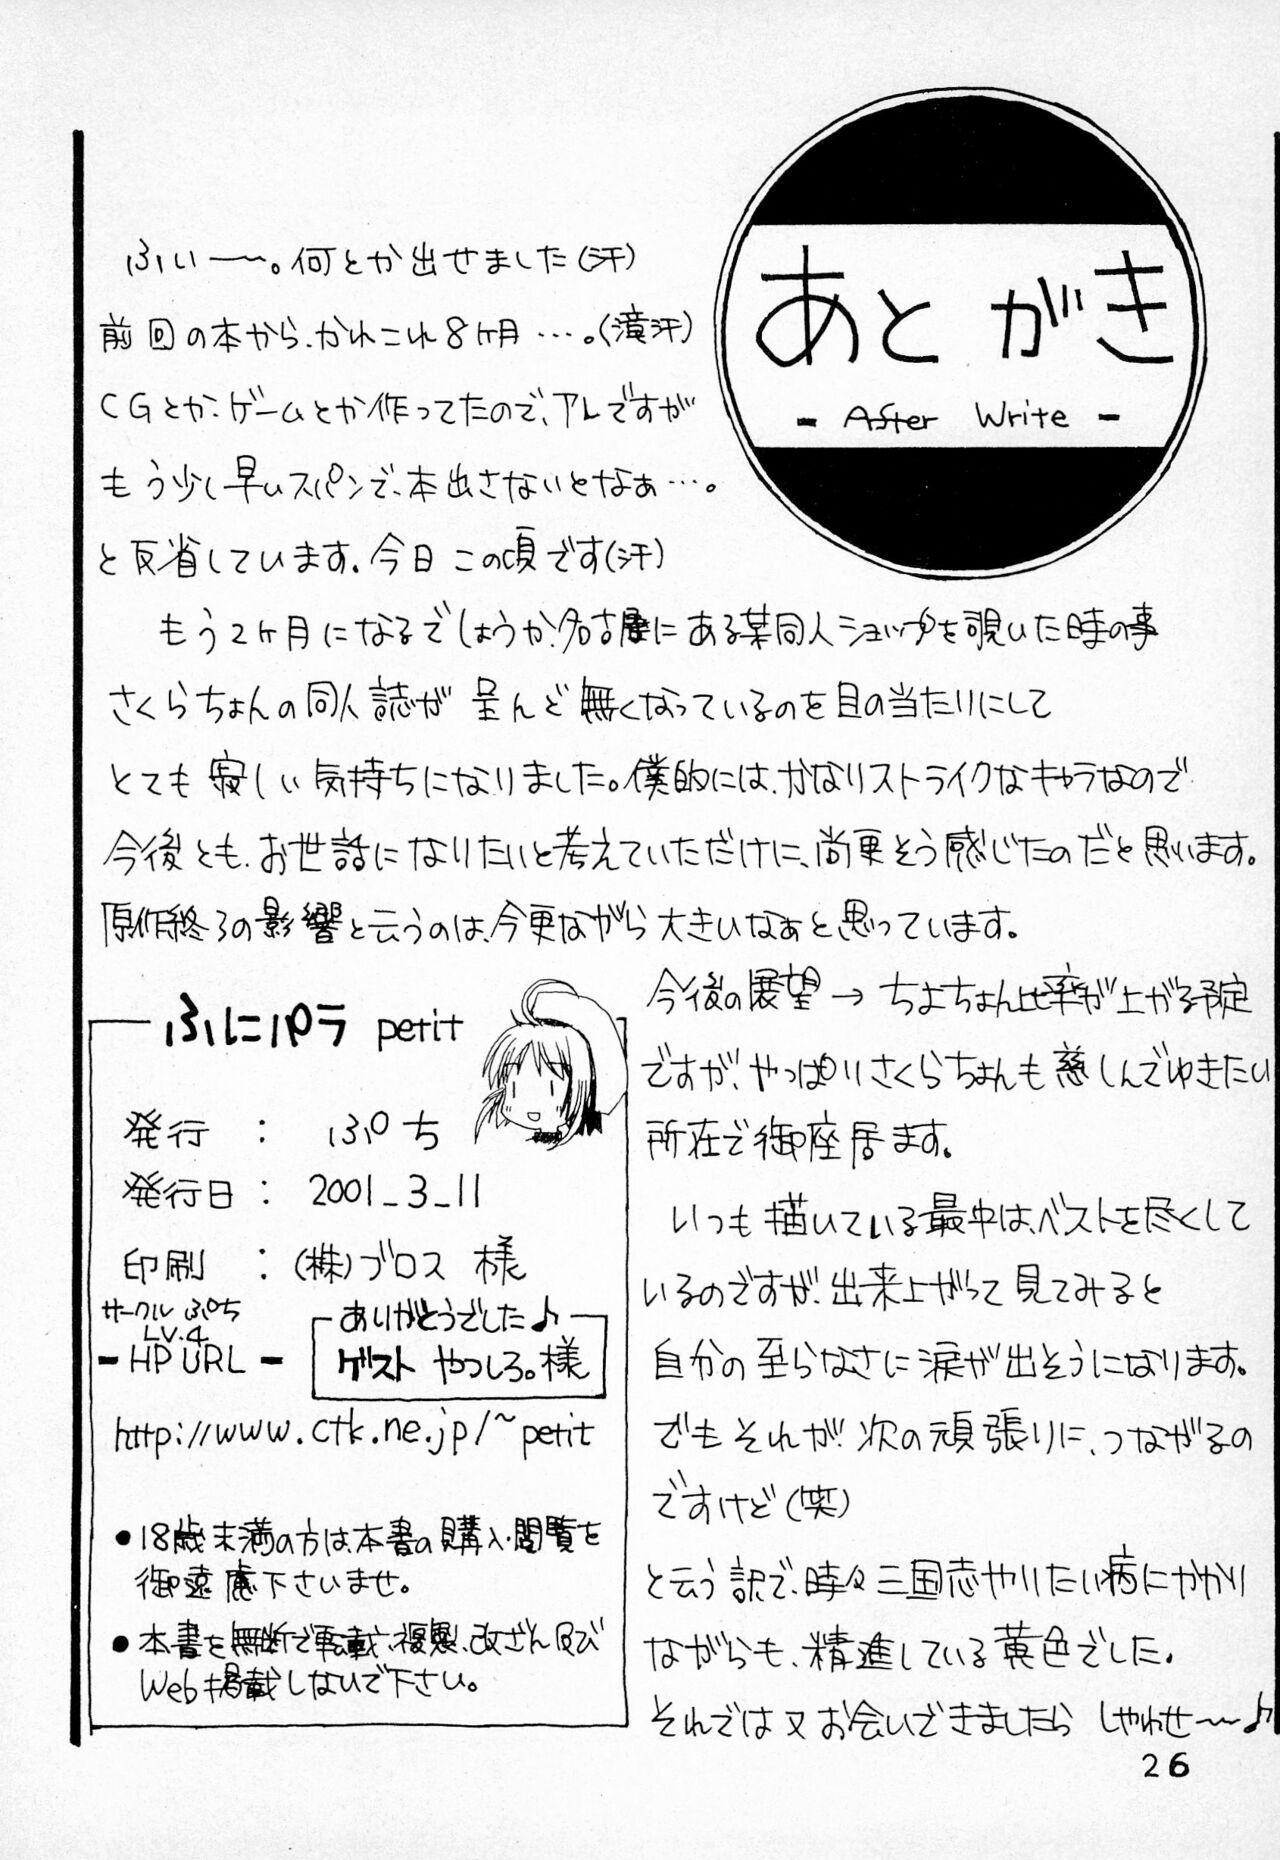 あとがき
- After Write -
ふい〜〜。何とか出せました(汗)
前回の本から、かれこれ8ヶ月…。(滝汗)
CGとか、ゲームとか作ってたので、アレですが
もう少し早いスパンで、本出さないとなぁ…。
と反省しています。今日この頃です(汗)
もう2ヶ月になるでしょうか、名古屋にある某同人ショップを覗いた時の事
さくらちょんの同人誌が呈んど無くなっているのを目の当たりにして
とても寂しい気持ちになりました。僕的には、かなりストライクなキャラなので
今後とも、お世話になりたいと考えていただけに、尚更そう感じたのだと思います。
原作終了の影響と云うのは、今更ながら大きいなぁと思っています。
今後の展望→ちよちょん比率が上がる予定
ですが、やっぱりさくらちょんも慈しんでゆきたい
所存で御座居ます。
いつも描いている最中は、ベストを尽くして
いるのですが、出来上がって見てみると
自分の至らなさに涙が出そうになります。
でもそれが次の頑張りに、つながるの
ですけど(笑)
と云う訳で、時々三国志やりたい病にかかり
ながらも、精進している黄色でした。
それでは又お会いできましたら しゃわせ〜〜♪
ふにパラ petit
発行 : ぷち
発行日 : 2001_3_11
印刷 : (株)ブロス 様
サークル ぷち
LV.4
- HP URL -
ありがとうでした♪
ゲスト やつしろ。様
http://www.ctk.ne.jp/~petit
●18歳未満の方は本書の購入・閲覧を
御遠慮下さいませ。
●本書を無断で転載、複製、改ざん及び
Web掲載しないで下さい。
26